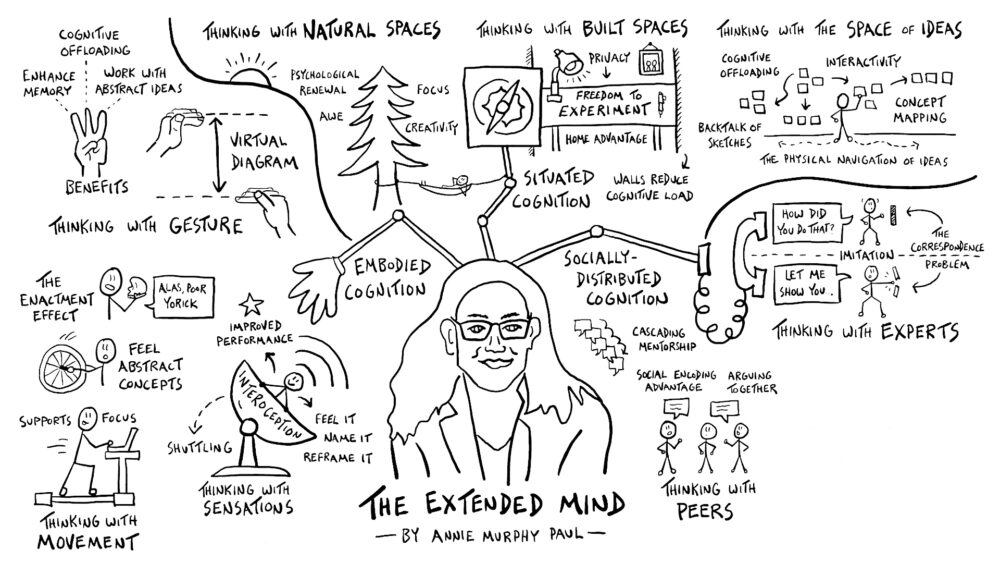 THINKING WITH NATURAL SPACES
PSYCHOLOGICAL
RENEWAL
AWE
FOCUS
CREATIVITY
THINKING WITH BUILT SPACES
PRIVACY
FREEDOM TO
EXPERIMENT
HOME ADVANTAGE
WALLS REDUCE
COGNITIVE LOAD
SITUATED
COGNITION
THINKING WITH THE SPACE OF IDEAS
COGNITIVE
OFFLOADING
INTERACTIVITY
CONCEPT
MAPPING
BACKTALK OF
SKETCHES
THE PHYSICAL NAVIGATION OF IDEAS
COGNITIVE
OFFLOADING
ENHANCE
MEMORY
WORK WITH
ABSTRACT IDEAS
BENEFITS
VIRTUAL
DIAGRAM
THINKING WITH GESTURE
EMBODIED
COGNITION
THE
ENACTMENT
EFFECT
ALAS, POOR
YORICK
FEEL
ABSTRACT
CONCEPTS
SUPPORTS FOCUS
THINKING WITH
MOVEMENT
IMPROVED
PERFORMANCE
INTEROCEPTION
SHUTTLING
FEEL IT
NAME IT
REFRAME IT
THINKING WITH
SENSATIONS
SOCIALLY-
DISTRIBUTED
COGNITION
HOW DID
YOU DO THAT?
IMITATION
LET ME
SHOW YOU..
THE
CORRESPONDENCE
PROBLEM
THINKING WITH EXPERTS
CASCADING
MENTORSHIP
SOCIAL ENCODING
ADVANTAGE
ARGUING
TOGETHER
THINKING WITH
PEERS
THE EXTENDED MIND
— BY ANNIE MURPHY PAUL —